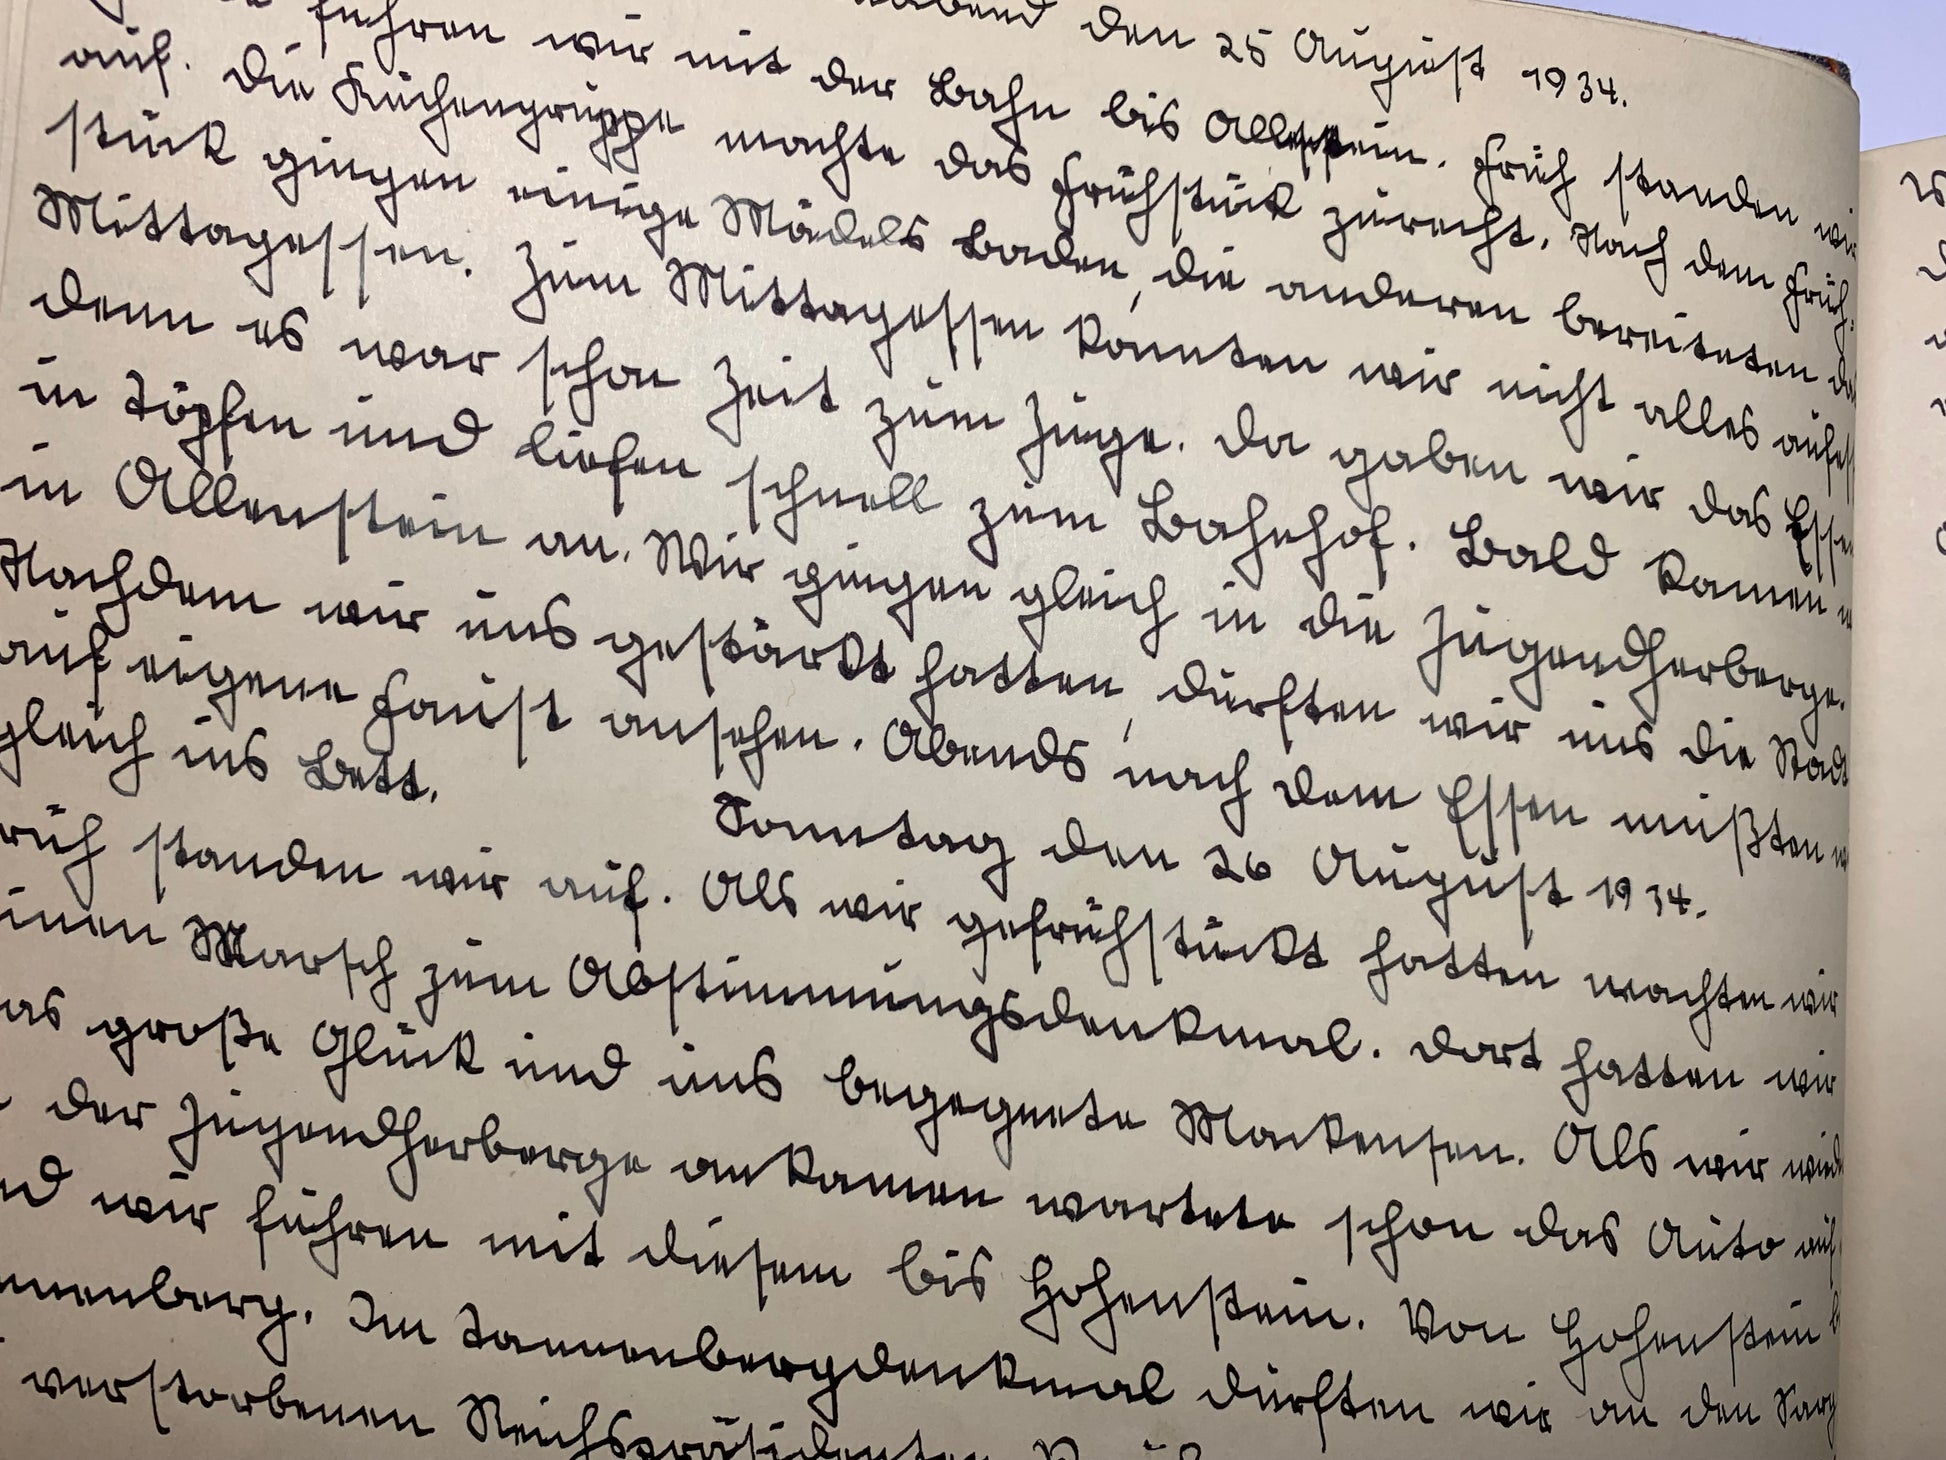 abend den 25 August 1934.
fuhren wir mit der Bahn bis Allenstein. Früh standen wir
auf. Die Küchengruppe machte das Frühstück zurecht. Nach dem Früh-
stück gingen einige Mädels Baden, die anderen bereiteten das
Mittagessen. Zum Mittagessen konnten wir nicht alles aufess
denn es war schon Zeit zum Zuge. Da gaben wir das Essen
in Töpfen und liefen schnell zum Bahnhof. Bald kamen w
in Allenstein an. Wir gingen gleich in die Jugendherberge.
Nachdem wir uns gestärkt hatten, durften wir uns die Stadt
auf eigene Faust ansehen. Abends nach dem Essen mußten w
gleich ins Bett.
Sonntag den 26 August 1934.
rüh standen wir auf. Als wir gefrühstückt hatten machten wir
inen Marsch zum Abstimmungsdenkmal. Dort hatten wir
as große Glück und uns begegnete Mackensen. Als wir wied
der Jugendherberge ankamen wartete schon das Auto auf
nd wir fuhren mit diesem bis Hohenstein. Von Hohenstein b
nnenberg. Im Tannenbergdenkmal durften wir an den Sarg
verstorbenen Reichspräsidenten